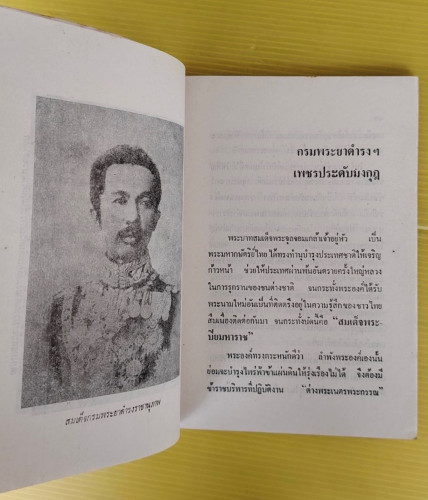 สมเด็จกรมพระยาดำรงราชานุภาพ
กรมพระยาดำรงฯ
เพชรประดับมงกุฎ
พระบาทสมเด็จพระจุลจอมเกล้าเจ้าอยู่หัว เป็น
พระมหากษัตริย์ไทย ได้ทรงทำนุบำรุงประเทศชาติให้เจริญ
ก้าวหน้า ช่วยให้ประเทศผ่านพ้นอันตรายครั้งใหญ่หลวง
ในการรุกรานของชนต่างชาติ จนกระทั่งพระองค์ได้รับ
พระนามใหม่อันเป็นที่ติดตรึงอยู่ในความรู้สึกของชาวไทย
สืบเนื่องติดต่อกันมา จนกระทั่งบัดนี้คือ “สมเด็จพระ-
ปิยมหาราช”
พระองค์ทรงตระหนักดีว่า ลำพังพระองค์เองนั้น
ย่อมจะบำรุงไพร่ฟ้าข้าแผ่นดินให้รุ่งเรืองไม่ได้ จึงต้องมี
ข้าราชบริหารที่ปฏิบัติงาน “ต่างพระเนตรพระกรรณ”